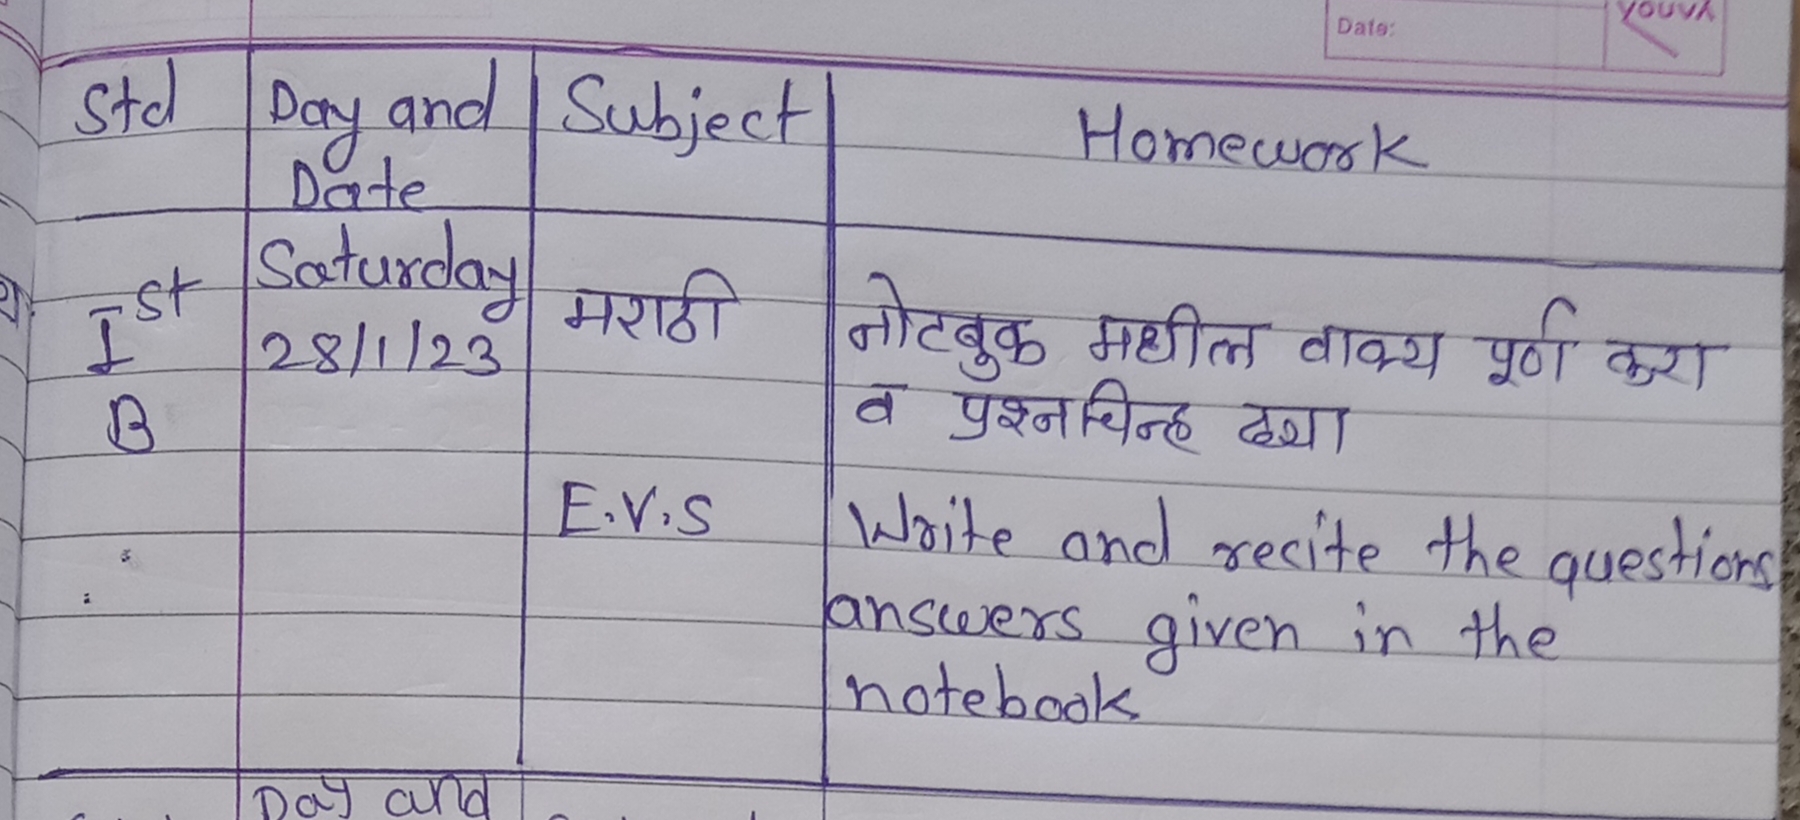 Date:
YOUVA
Std Day and Subject Homework
Date
Saturday
Ist मराठी नोटबुक मधील वाक्य पूर्ण करा
28/1/23
B व प्रश्नचिन्ह दया
E.V.S Write and recite the questions
answers given in the
notebook
Day and